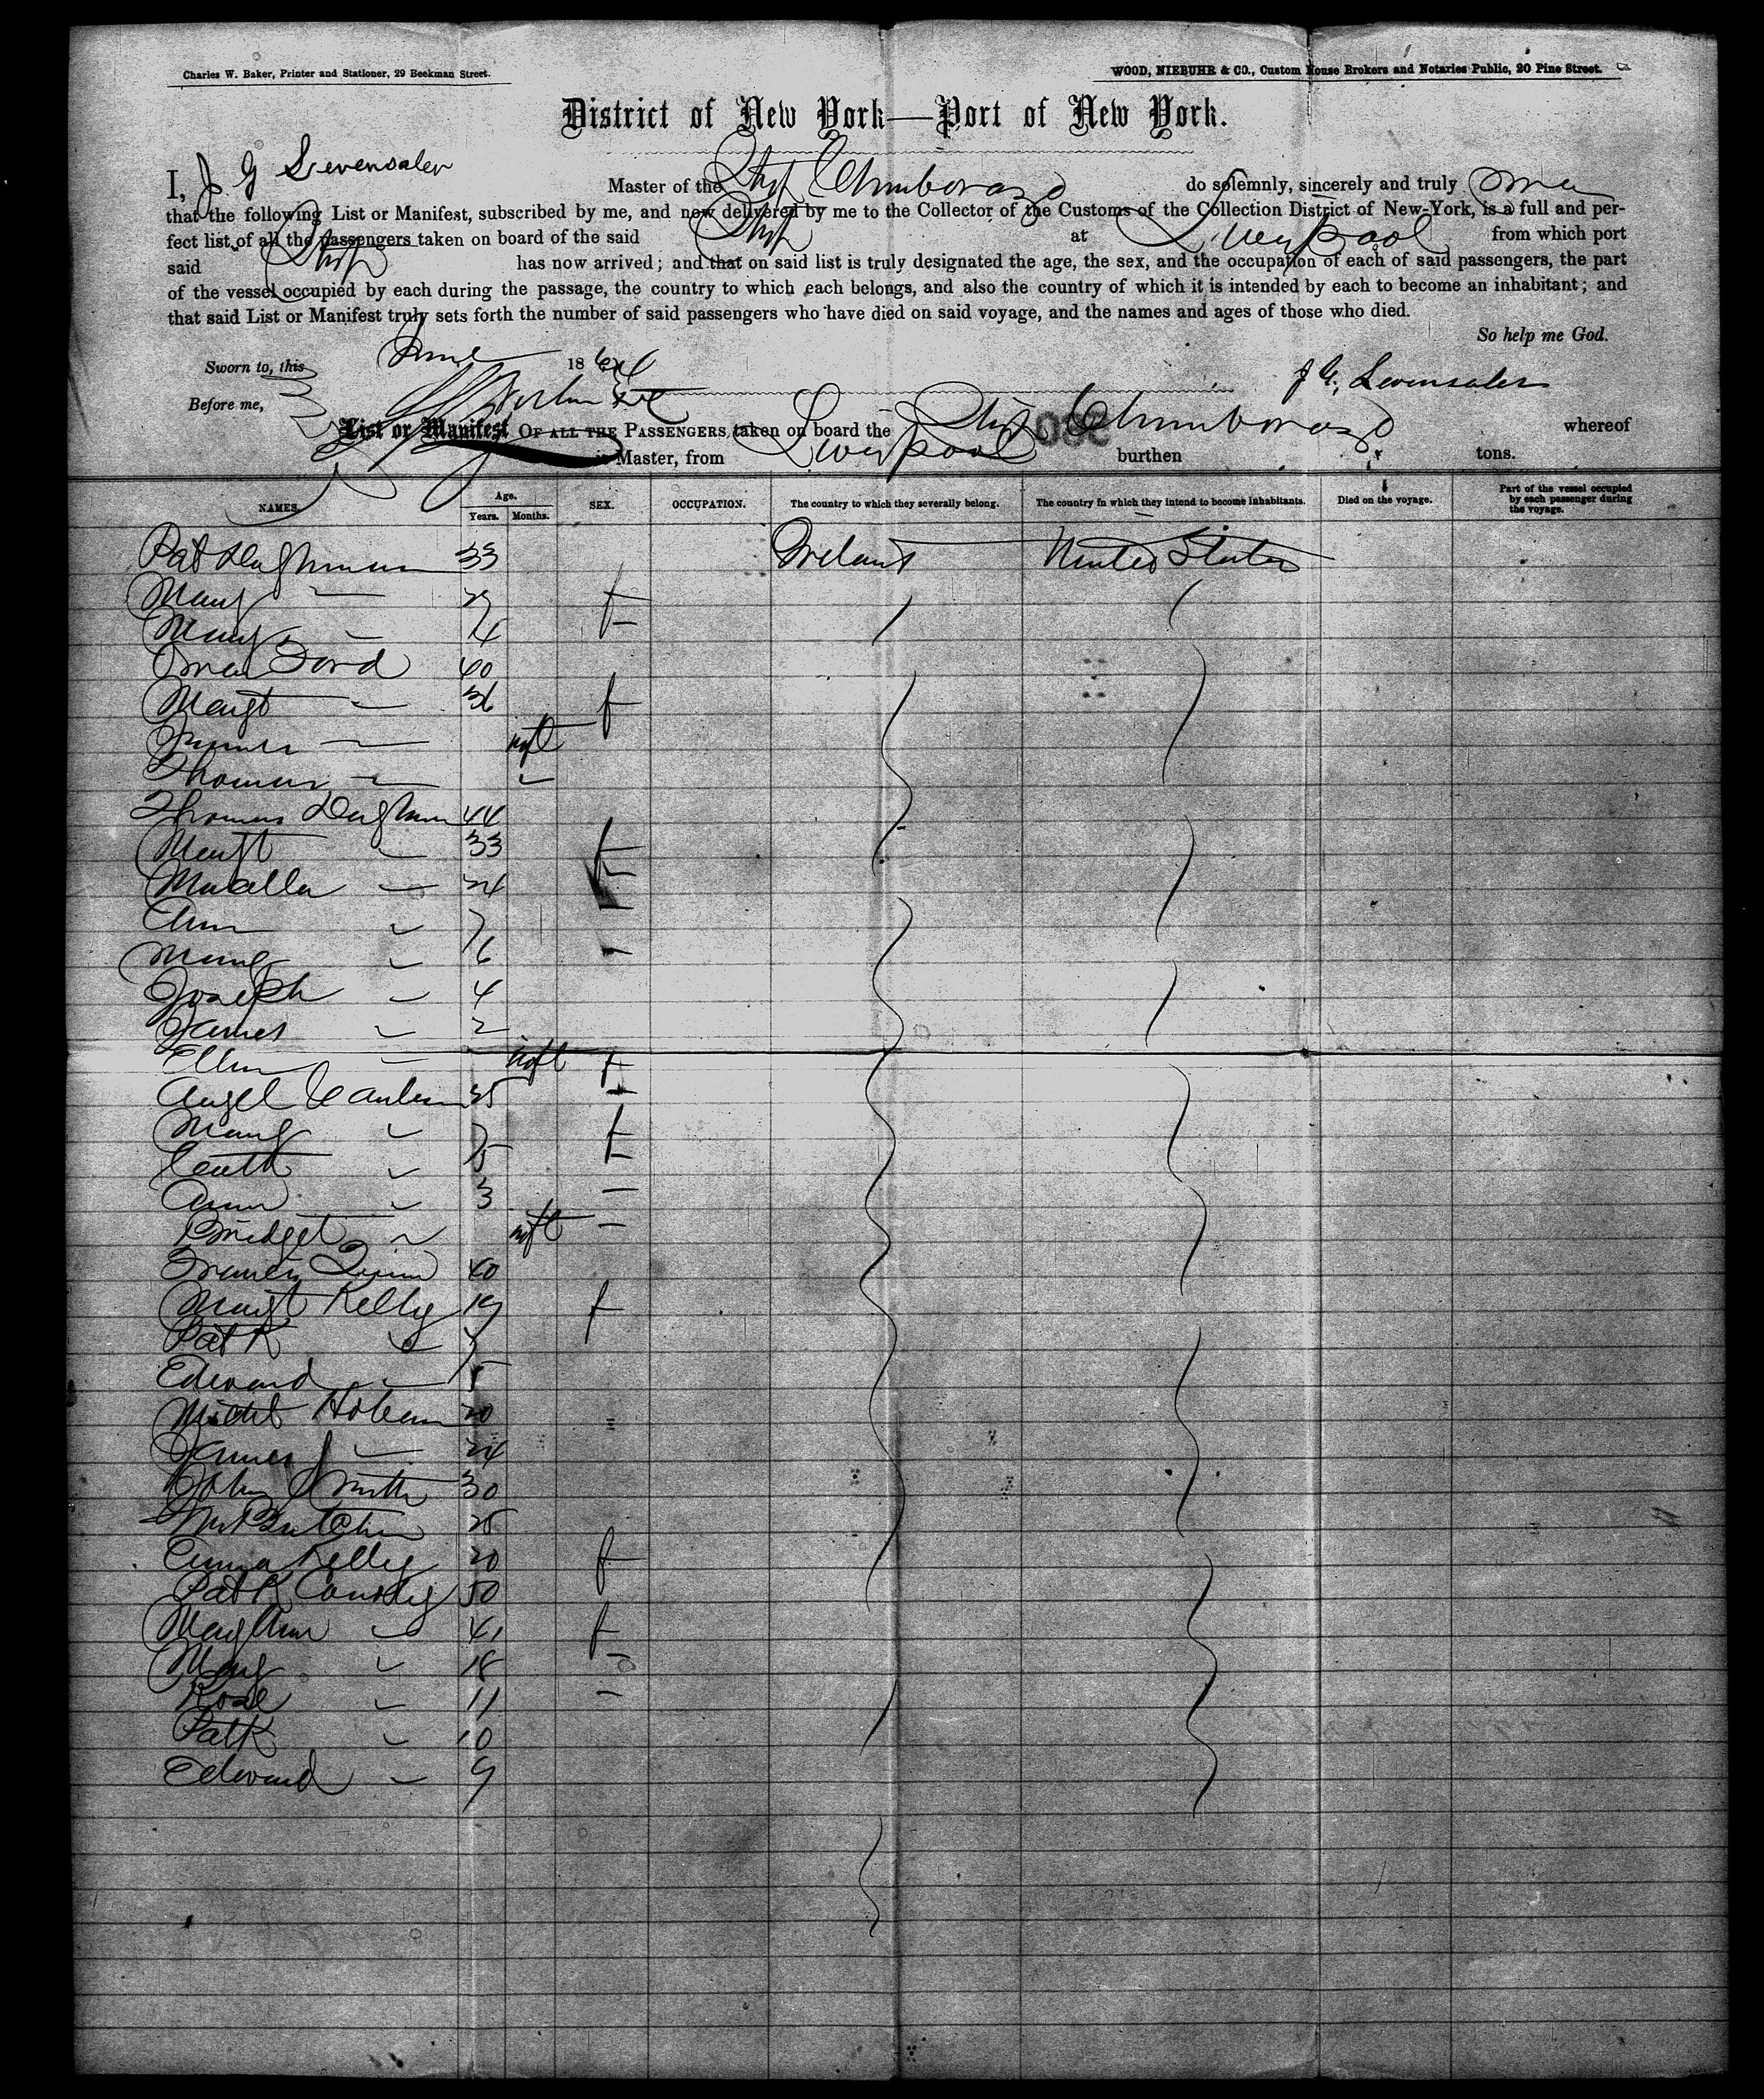 Charles W. Baker, Printer and Stationer, 29 Beekman Street.
WOOD, NIEBUHR & CO., Custom House Brokers and Notaries Public, 20 Pine Street.
District of New York—Port of New York.
I, J G Levensaler Master of the Ship Chimborazo do solemnly, sincerely and truly swear
that the following List or Manifest, subscribed by me, and now delivered by me to the Collector of the Customs of the Collection District of New-York, is a full and per-
fect list of all the passengers taken on board of the said Ship at Liverpool from which port
said Ship has now arrived; and that on said list is truly designated the age, the sex, and the occupation of each of said passengers, the part
of the vessel occupied by each during the passage, the country to which each belongs, and also the country of which it is intended by each to become an inhabitant; and
that said List or Manifest truly sets forth the number of said passengers who have died on said voyage, and the names and ages of those who died.
So help me God.
Sworn to, this June 1864
J G. Levensaler
Before me,
List or Manifest OF ALL THE PASSENGERS taken on board the Ship Chimborazo whereof
is Master, from Liverpool burthen tons.
NAMES. Age. Years. Months. SEX. OCCUPATION. The country to which they severally belong. The country in which they intend to become inhabitants. Died on the voyage. Part of the vessel occupied by each passenger during the voyage.
Pat 33 Ireland United States
Mary — f
Mary — 4 —
Ford 40
Margt — 36 f
James — inft
Thomas — ✓
Thomas 44
Margt — 33 f
— 24 f
Ann 7 —
Mary 6 —
Joseph 4
James 2
Ellen — inft f
25 —
Mary 7 f
Cath 5 f
Ann 3 —
Bridget inft —
Francis Quinn 40
Margt Kelly 19 f
Patk 7
Edward — 5
Michl Hoban 20
James — 24
John Smith 30
25
Anna Kelly 20 f
Patk 50
Mary Ann 41 f
Mary 18 —
Rose 11 —
Patk 10
Edward — 9